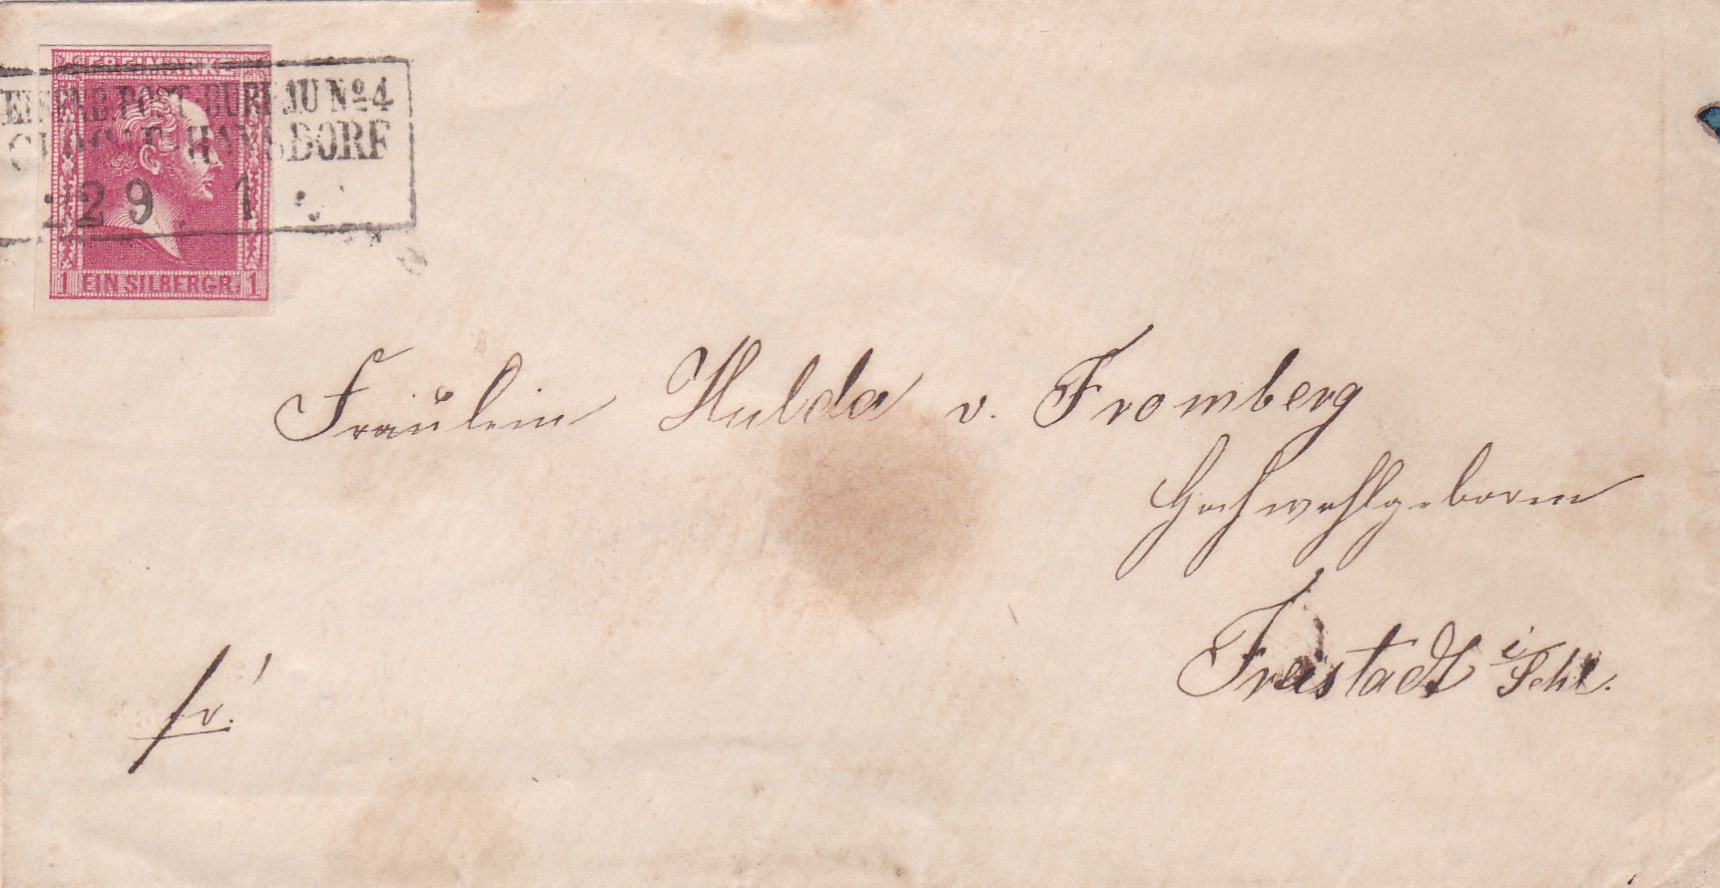 FREIMARKE
EISENB. POST-BUREAU No 4
GLOGAU HANSDORF
29 1
1 EIN SILBERGR. 1
Fräulein Hulda v. Fromberg
Hochwohlgeboren
Freistadt i/Schl.
fr.